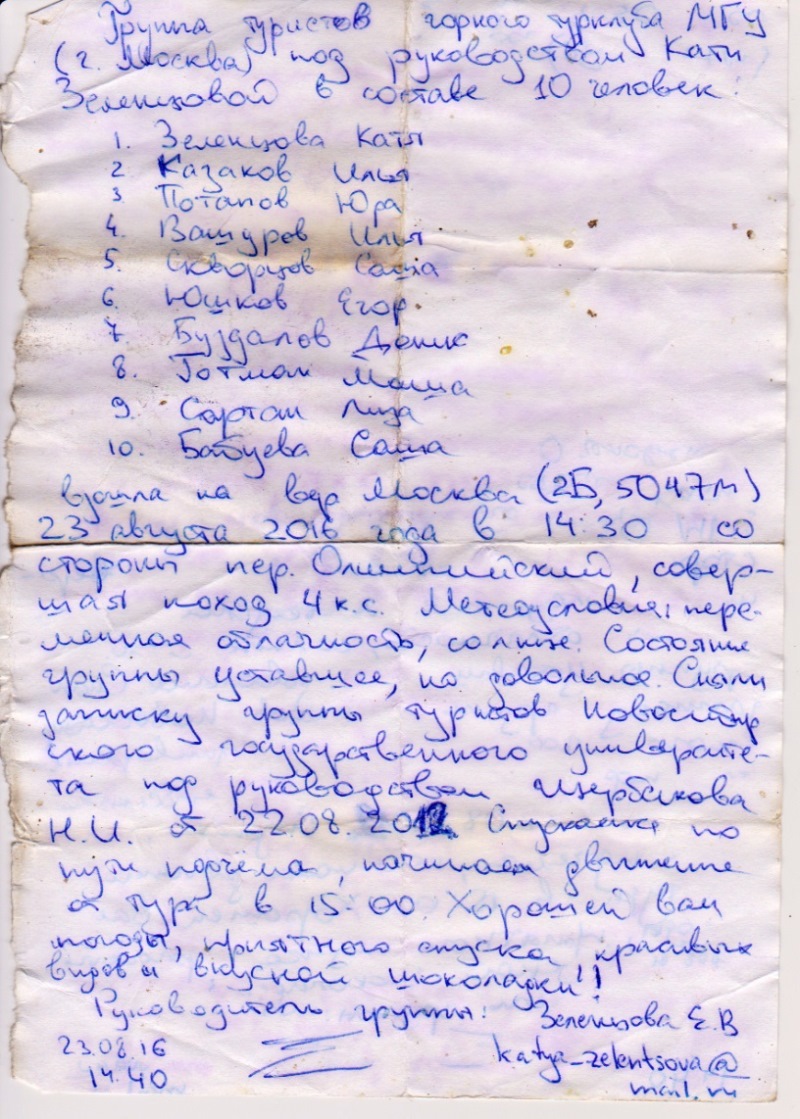 Группа туристов горного турклуба МГУ
(г. Москва) под руководством Кати
Зеленцовой в составе 10 человек:
1. Зеленцова Катя
2 Казаков Илья
3 Потапов Юра
4. Вашуров Илья
5. Скворцов Саша
6. Юшков Егор
7. Буздалов Доник
8. Готман Маша
9. Сартан Лиза
10. Бабуева Саша
взошла на вер Москва (2Б, 5047м)
23 августа 2016 года в 14:30 со
стороны пер. Олимпийский, совер-
шая поход 4 к.с. Метеоусловия: пере-
менная облачность, солнце. Состояние
группы уставшее, но довольное. Сняли
записку группы туристов Новосибир
ского государственного университе-
та под руководством Щербакова
Н.И. от 22.08.2012 Спускаемся по
пути подъёма, начинаем движение
от тура в 15:00. Хорошей вам
погоды, приятного спуска, красивых
видов и вкусной шоколадки!!
Руководитель группы: Зеленцова Е.В
23.08.16
14.40
katya_zelentsova@
mail.ru